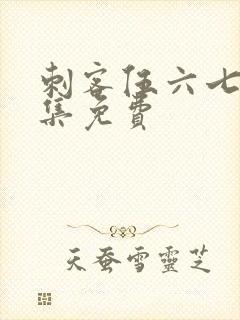 刺客伍六七
集免費
天蚕雪靈芝